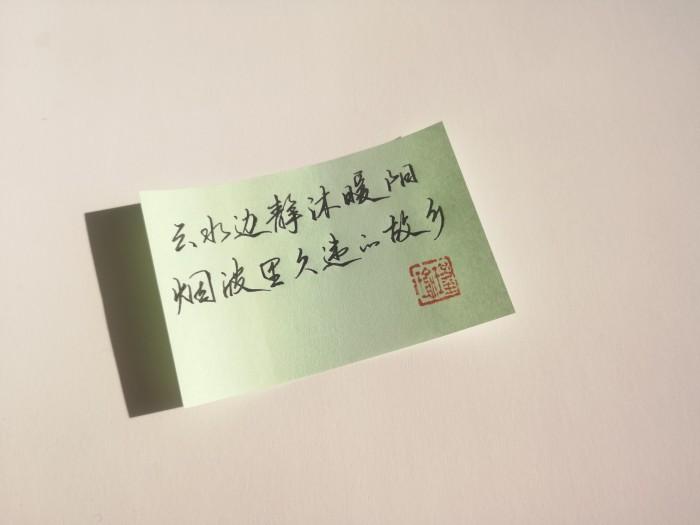 云水边静沐暖阳
烟波里久违的故乡